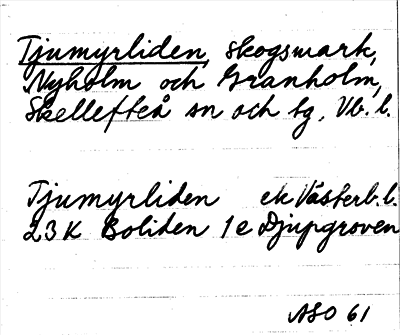 Tjumyrliden, skogsmark,
Nyholm och Granholm,
Skellefteå sn och tg, Vb. l.
Tjumyrliden ek Västerb. l.
23 K Boliden 1 e Djupgroven
ASO 61